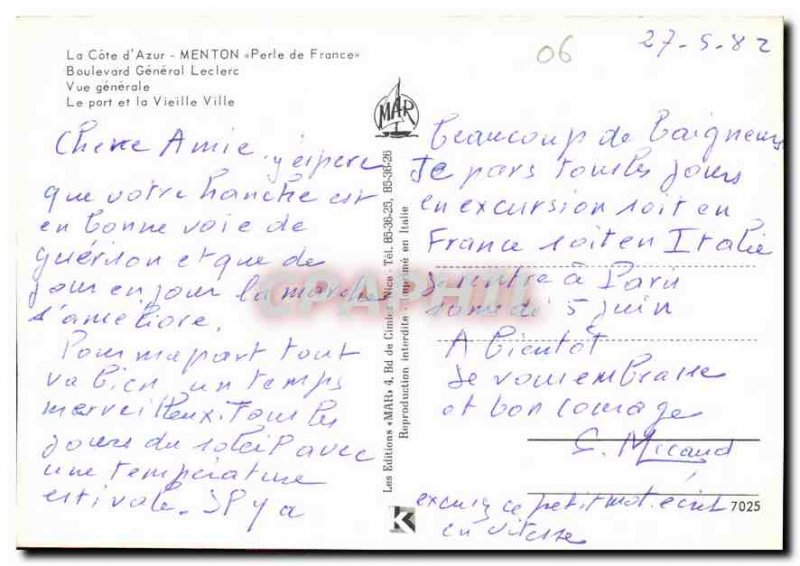 La Côte d'Azur - MENTON «Perle de France»
Boulevard Général Leclerc
Vue générale
Le port et la Vieille Ville
06
27-5-82
MAR
Chere Amie. j'espere
que votre hanche est
en bonne voie de
guérison et que de
jour en jour la marche
s'améliore.
Pour ma part tout
va bien, un temps
merveilleux. Tous les
jours du soleil avec
une température
estivale. Il y a
Beaucoup de baigneurs
Je pars tous les jours
en excursion soit en
France soit en Italie
Je rentre à Paris
samedi 5 juin
A bientôt
Je vous embrasse
et bon courage
Micaud
excusez ce petit mot écrit
en vitesse
Les Editions «MAR» 4, Bd de Cimiez Nice - Tél. 85-36-25, 85-36-26
Reproduction interdite - Imprimé en Italie
CPAPHIL
K
7025